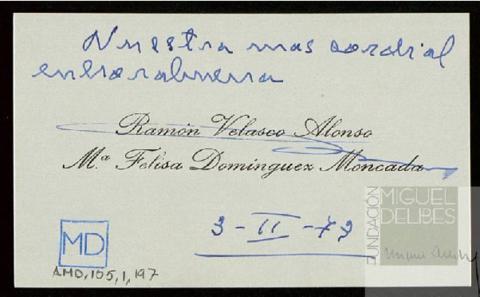 Nuestra mas cordial
enhorabuena
Ramón Velasco Alonso
Mª Felisa Domínguez Moncada
3-II-73
MD
AMD,105,1,197
FUNDACIÓN
MIGUEL
DELIBES